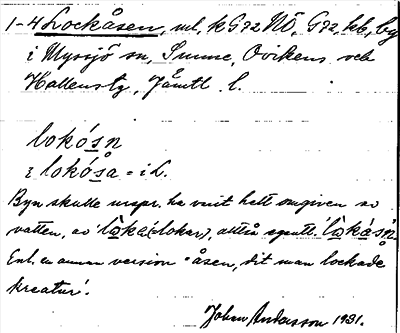 1-4 Lockåsen, ml, k G72 NÖ, G72, hb, by
i Myssjö sn, Sunne, Ovikens och
Hallens tg, Jämtl. l.
lokósn
i lokósa = i L.
Byn skulle urspr. ha varit helt omgiven av
vatten, av 'lo̱ka' (lokar), alltså egentl. 'lo̱kåsn'.
Enl. en annan version 'åsen, dit man lockade
kreatur'.
Johan Andersson 1931.